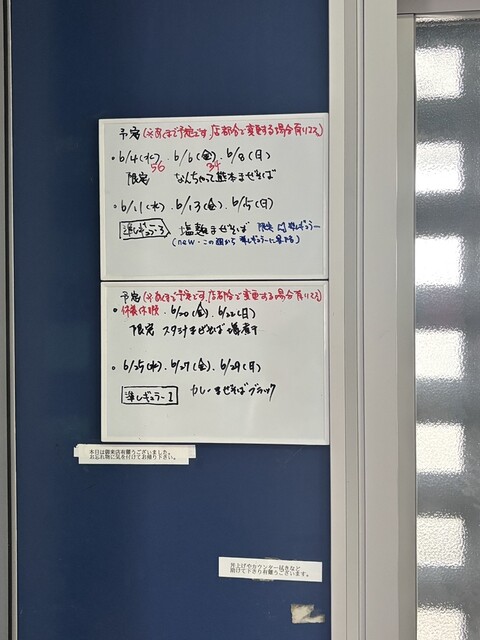 予定(※あくまで予定です、店都合で変更する場合有ります)
・6/4(水)、6/6(金)、6/8(日)
56 34
限定 なんちゃって熊本まぜそば
・6/11(水)、6/13(金)、6/15(日)
準レギュラー3 塩麹まぜそば 限定 準レギュラー
(new・この週から準レギュラーに昇格)
予定(※あくまで予定です、店都合で変更する場合有ります)
・休業休暇、6/20(金)、6/22(日)
限定 スタミナまぜそば
・6/25(水)、6/27(金)、6/29(日)
準レギュラー1 カレーまぜそばブラック
本日は御来店有難うございました。
お忘れ物に気を付けてお帰り下さい。
丼上げやカウンター拭きなど
助けて下さり有難うございます。